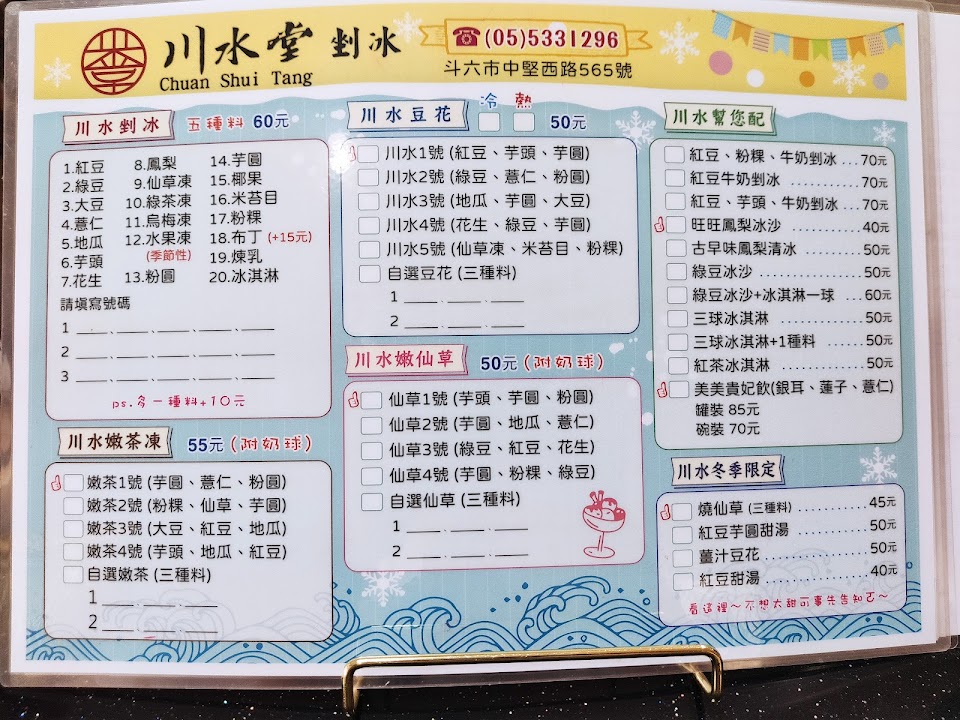 川水堂 剉冰
Chuan Shui Tang
☎(05)5331296
斗六市中堅西路565號
川水剉冰 五種料 60元
1.紅豆 8.鳳梨 14.芋圓
2.綠豆 9.仙草凍 15.椰果
3.大豆 10.綠茶凍 16.米苔目
4.薏仁 11.烏梅凍 17.粉粿
5.地瓜 12.水果凍 18.布丁 (+15元)
(季節性)
6.芋頭 19.煉乳
7.花生 13.粉圓 20.冰淇淋
請填寫號碼
1 ___.___.___.___.___
2 ___.___.___.___.___
3 ___.___.___.___.___
ps.多一種料+10元
川水嫩茶凍 55元 (附奶球)
嫩茶1號 (芋圓、薏仁、粉圓)
嫩茶2號 (粉粿、仙草、芋圓)
嫩茶3號 (大豆、紅豆、地瓜)
嫩茶4號 (芋頭、地瓜、紅豆)
自選嫩茶 (三種料)
1 ___.___.___
2 ___.___.___
川水豆花 冷 熱 50元
川水1號 (紅豆、芋頭、芋圓)
川水2號 (綠豆、薏仁、粉圓)
川水3號 (地瓜、芋圓、大豆)
川水4號 (花生、綠豆、芋圓)
川水5號 (仙草凍、米苔目、粉粿)
自選豆花 (三種料)
1 ___.___.___
2 ___.___.___
川水嫩仙草 50元 (附奶球)
仙草1號 (芋頭、芋圓、粉圓)
仙草2號 (芋圓、地瓜、薏仁)
仙草3號 (綠豆、紅豆、花生)
仙草4號 (芋圓、粉粿、綠豆)
自選仙草 (三種料)
1 ___.___.___
2 ___.___.___
川水幫您配
紅豆、粉粿、牛奶剉冰 ...70元
紅豆牛奶剉冰 ............70元
紅豆、芋頭、牛奶剉冰 ...70元
旺旺鳳梨冰沙 ............40元
古早味鳳梨清冰 .........50元
綠豆冰沙 ................50元
綠豆冰沙+冰淇淋一球 ...60元
三球冰淇淋 ..............50元
三球冰淇淋+1種料 .......50元
紅茶冰淇淋 ..............50元
美美貴妃飲(銀耳、蓮子、薏仁)
罐裝 85元
碗裝 70元
川水冬季限定
燒仙草 (三種料) ..........45元
紅豆芋圓甜湯 ............50元
薑汁豆花 .................50元
紅豆甜湯 .................40元
看這裡～不想太甜可事先告知ㄛ～